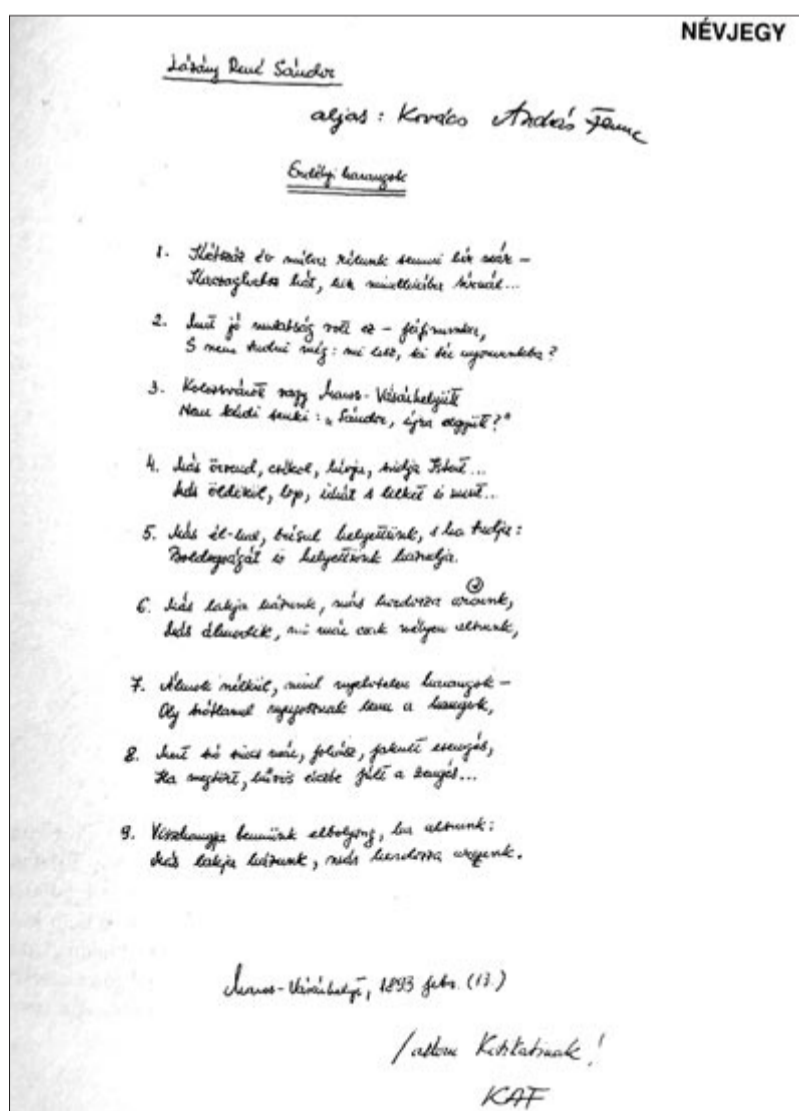 NÉVJEGY
Lázáry René Sándor
aljas: Kovács András Ferenc
Erdélyi harangok
1. Kétszáz év múlva rólunk semmi hír már –
Kacaghatsz hát, ha
2. Mert jó mulatság volt ez –
S nem tudni még: mi lesz, ki lép nyomunkba?
3. Kolozsvárott vagy Maros-Vásárhelyütt
Nem kérdi senki: „Sándor, újra együtt?"
4. Más örvend, csókol, hívja, áldja Istent...
Más öldököl, lop, eladt s lelket is ment...
5. Más él-hal, búsul helyettünk, s ha tudja:
Boldogságát is helyettünk hazudja.
6. Más lakja házunk, más hordozza arcunk,
Más álmodik, mi már csak mélyen alszunk,
7. Álmok nélkül, mint nyelvetlen harangok –
Oly szótlanul nyugosznak lenn a hangok,
8. Mert szó sincs már, fohász, jakult esengés,
Ha megtört, bűvös ércbe fúlt a zengés...
9. Visszhangja bennünk elbolyong, ha alszunk:
Más lakja házunk, más hordozza arcunk.
Maros-Vásárhelyt, 1893 febr. (13.)
KAF